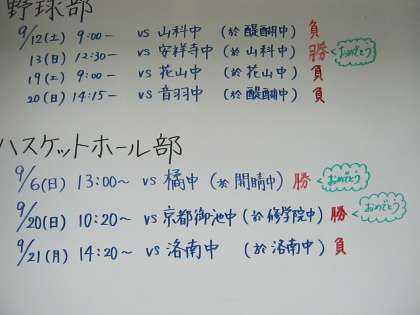 野球部
9/12(土) 9:00〜 vs 山科中 (於 醍醐中) 負
13(日) 12:30〜 vs 安祥寺中 (於 山科中) 勝 おめでとう
19(土) 9:00〜 vs 花山中 (於 花山中) 負
20(日) 14:15〜 vs 音羽中 (於 醍醐中) 負
バスケットボール部
9/6(日) 13:00〜 vs 橘中 (於 開睛中) 勝 おめでとう
9/20(日) 10:20〜 vs 京都御池中 (於 修学院中) 勝 おめでとう
9/21(月) 14:20〜 vs 洛南中 (於 洛南中) 負